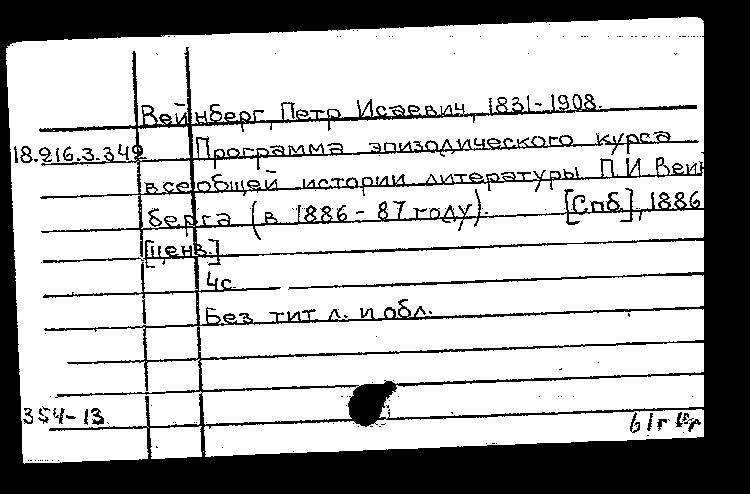 Вейнберг, Петр Исаевич, 1831-1908.
18.216.3.342 Программа эпизодического курса
всеобщей истории литературы П.И Вейн
берга (в 1886-87 году). [Спб], 1886
[ценз.]
4с
Без тит л. и обл.
354-13
61г